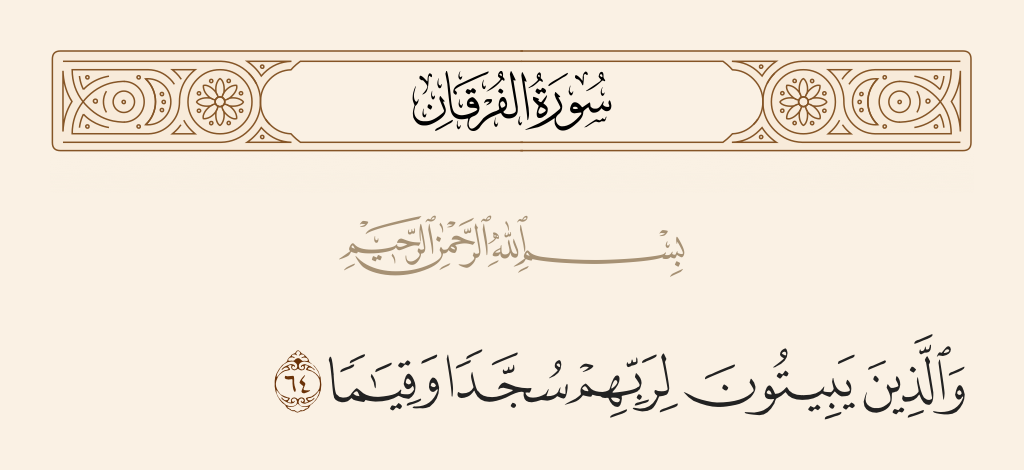 سُورَةُ الفُرْقَانِ
بِسْمِ ٱللَّهِ ٱلرَّحْمَٰنِ ٱلرَّحِيمِ
وَٱلَّذِينَ يَبِيتُونَ لِرَبِّهِمْ سُجَّدًا وَقِيَٰمًا ٦٤